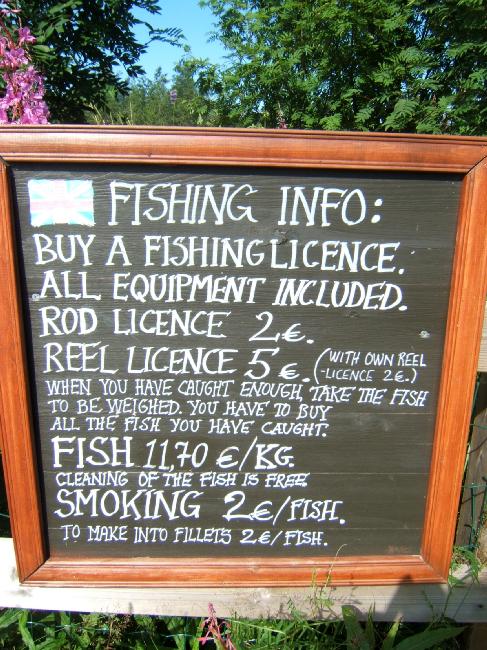 FISHING INFO:
BUY A FISHING LICENCE.
ALL EQUIPMENT INCLUDED.
ROD LICENCE 2€.
REEL LICENCE 5€. (WITH OWN REEL
-LICENCE 2€.)
WHEN YOU HAVE CAUGHT ENOUGH, TAKE THE FISH
TO BE WEIGHED. YOU HAVE TO BUY
ALL THE FISH YOU HAVE CAUGHT.
FISH 11,70 €/KG.
CLEANING OF THE FISH IS FREE
SMOKING 2€/FISH.
TO MAKE INTO FILLETS 2€/FISH.